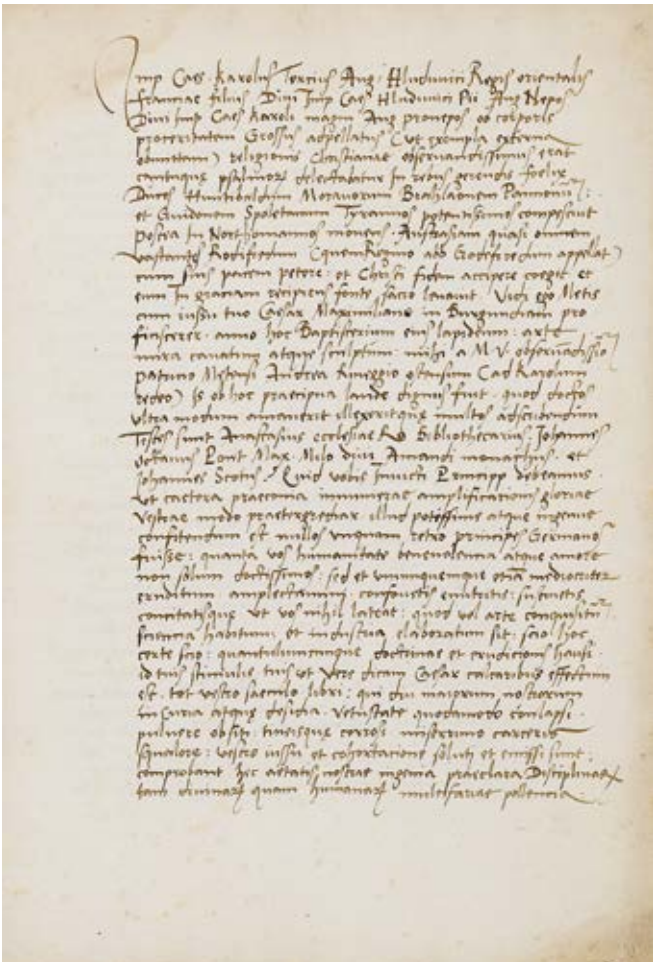 Imp Caes Karolus Tercius Aug Hludovici Regis orientalis
franciae filius Divi Imp Caes Hludovici Pii Aug Nepos
Divi Imp Caes Karoli magni Aug pronepos ob corporis
proceritatem Grossus adpellatus (ut exempla externa
) religionis Christianae observandissimus erat
cantuque psalmorum delectabatur In rebus gerendis foelix
Duces Moravorum
et Guidonem Spoletanum Tyrannos potentissimos compescuit
postea In Northomannos movens Austrasiam quasi omnem
vastantes Rodifredum (quem Regino abb Godefredum appellat)
cum suis pacem petere: et Christi fidem accipere coegit et
eum In graciam recipiens fonte sacro levavit. Vidi ego Metis
cum iussu tuo Caesar Maximiliane in Burgundiam pro
ficiscerer. anno hoc Baptisterium eius lapideum: arte
mira cavatum atque sculptum: mihi a M V observandissimo
patricio Metensi Andrea ostensum (ad Karolum
redeo) Is ob hoc praecipua laude dignus fuit. quod doctos
ultra modum amaverit illexeritque multos ad scribendum
Testes sunt Anastasius ecclesiae Ro Bibliothecarius. Johannes
octavus Pont Max. Milo divi Amandi monachus. et
Johannes Scotus. Quid vobis Invicti Principes debeamus.
ut caetera praeconia innumerae amplificationis gloriae
vestrae modo praetergrediar illud potissime atque ingenue
confitendum est nullos unquam retro principes Germanos
fuisse: quanta vos humanitate benevolencia atque amore
non solum doctissimos: sed et unumquemque etiam mediocriter
eruditum amplectamini. confovetis enutritis:
concitatisque ut vos nihil lateat: quod vel arte conquisitum
sciencia habitum et industria elaboratum sit: scio hoc
certe scio: quantulumcunque doctrinae et erudicionis hausi.
id tuis stimulis tuis ut vere dicam Caesar calcaribus effectum
est. tot vestro saeculo libri: qui diu maiorum nostrorum
incuria atque desidia. vetustate quodamodo conlapsi.
pulvere obsiti: tineisque corrosi miserrimo carceris
squalore: vestro iussu et cohortacione soluti et emissi sunt.
comprobant hec aetatis nostrae ingenia praeclara Disciplinarum
tam divinarum quam humanarum multifariae pollencia